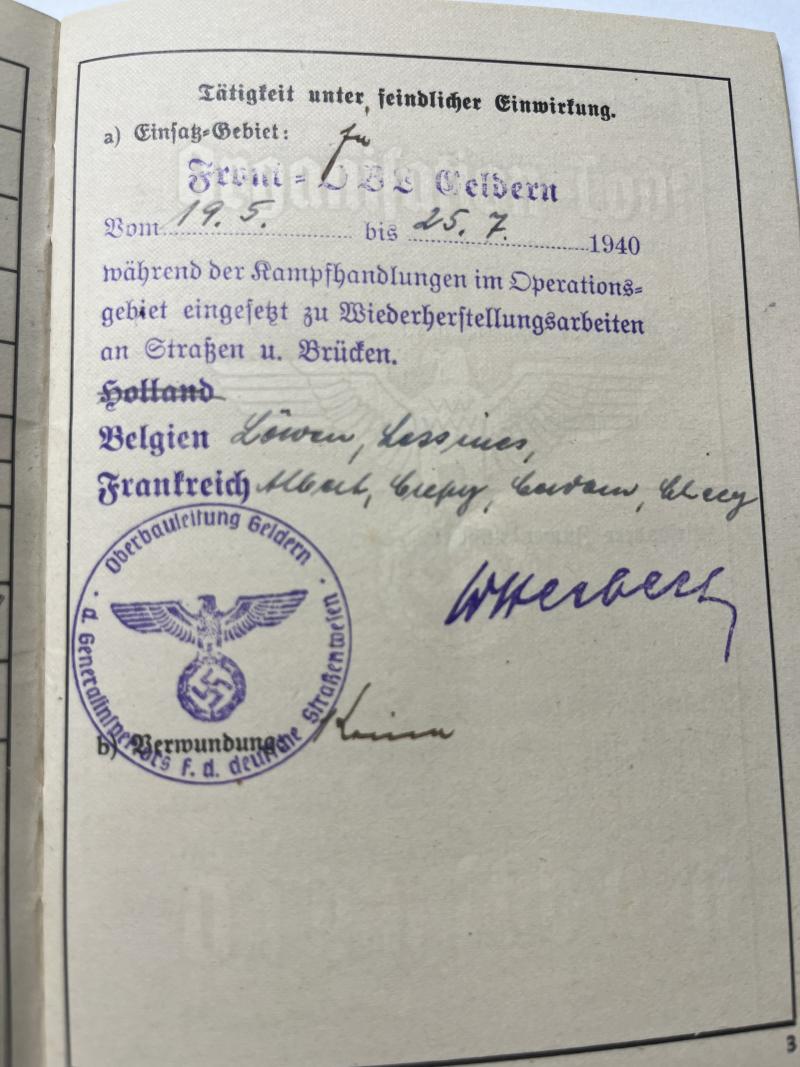 Tätigkeit unter feindlicher Einwirkung.
a) Einsatz-Gebiet:
Front = OBL Geldern
Vom 19. 5. bis 25. 7. 1940
während der Kampfhandlungen im Operations=
gebiet eingesetzt zu Wiederherstellungsarbeiten
an Straßen u. Brücken.
Holland
Belgien Löwen, Lessines,
Frankreich Albert, Crepy,
Oberbauleitung Geldern
d. Generalinspektors f. d. deutsche Straßenwesen
b) Verwundung: Keine
3